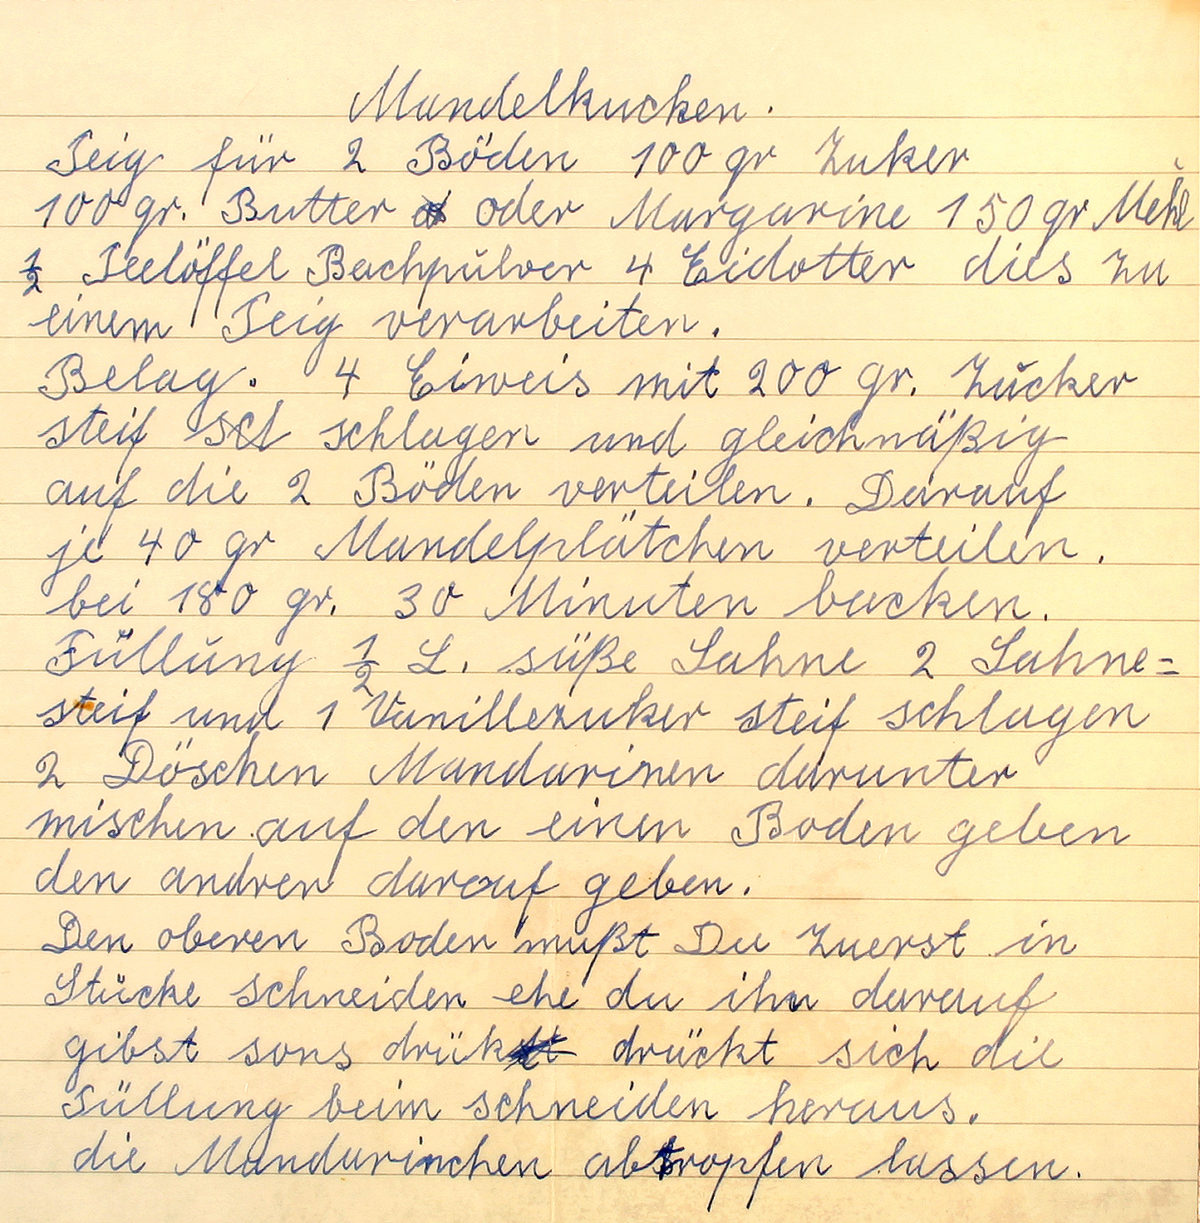 Mandelkuchen.
Teig für 2 Böden 100 gr Zuker
100 gr. Butter oder Margarine 150 gr Mehl
1/2 Teelöffel Bachpulver 4 Eidotter dies zu
einem Teig verarbeiten.
Belag. 4 Eiweis mit 200 gr. Zucker
steif scl schlagen und gleichmäßig
auf die 2 Böden verteilen. Darauf
je 40 gr Mandelplätchen verteilen.
bei 180 gr. 30 Minuten backen.
Füllung 1/2 L. süße Sahne 2 Sahne=
steif und 1 Vanillezuker steif schlagen
2 Döschen Mandarinen darunter
mischen auf den einen Boden geben
den andren darauf geben.
Den oberen Boden mußt Du zuerst in
Stücke schneiden ehe du ihn darauf
gibst sons drük drückt sich die
Füllung beim schneiden heraus.
die Mandarinchen abtropfen lassen.